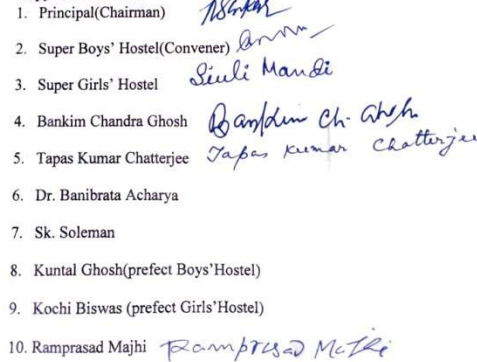 1. Principal(Chairman)
2. Super Boys' Hostel(Convener)
3. Super Girls' Hostel Siuli Mandi
4. Bankim Chandra Ghosh Bankim Ch. Ghosh
5. Tapas Kumar Chatterjee Tapas Kumar Chatterjee
6. Dr. Banibrata Acharya
7. Sk. Soleman
8. Kuntal Ghosh(prefect Boys'Hostel)
9. Kochi Biswas (prefect Girls'Hostel)
10. Ramprasad Majhi Ramprasad Majhi